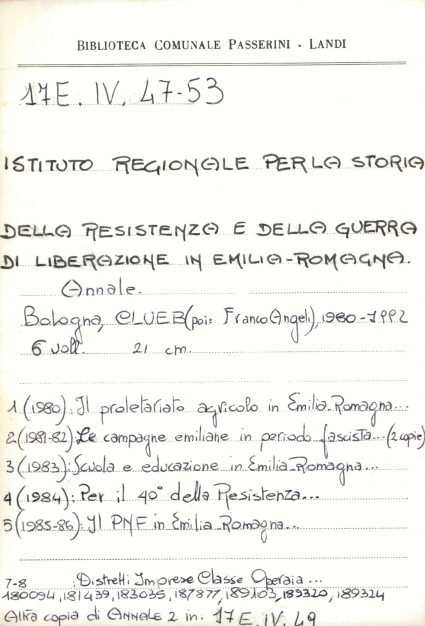 BIBLIOTECA COMUNALE PASSERINI - LANDI
17E. IV. 47-53
ISTITUTO REGIONALE PER LA STORIA
DELLA RESISTENZA E DELLA GUERRA
DI LIBERAZIONE IN EMILIA-ROMAGNA.
Annale.
Bologna, CLUEB (poi: Franco Angeli), 1980-1992
6 voll. 21 cm.
1 (1980): Il proletariato agricolo in Emilia-Romagna...
2 (1981-82): Le campagne emiliane in periodo fascista... (2 copie)
3 (1983): Scuola e educazione in Emilia-Romagna...
4 (1984): Per il 40° della Resistenza...
5 (1985-86): Il PNF in Emilia-Romagna...
7-8 : Distretti Imprese Classe Operaia ...
180094, 181439, 183035, 187877, 189103, 189320, 189324
Altra copia di ANNALE 2 in: 17 E. IV. 49